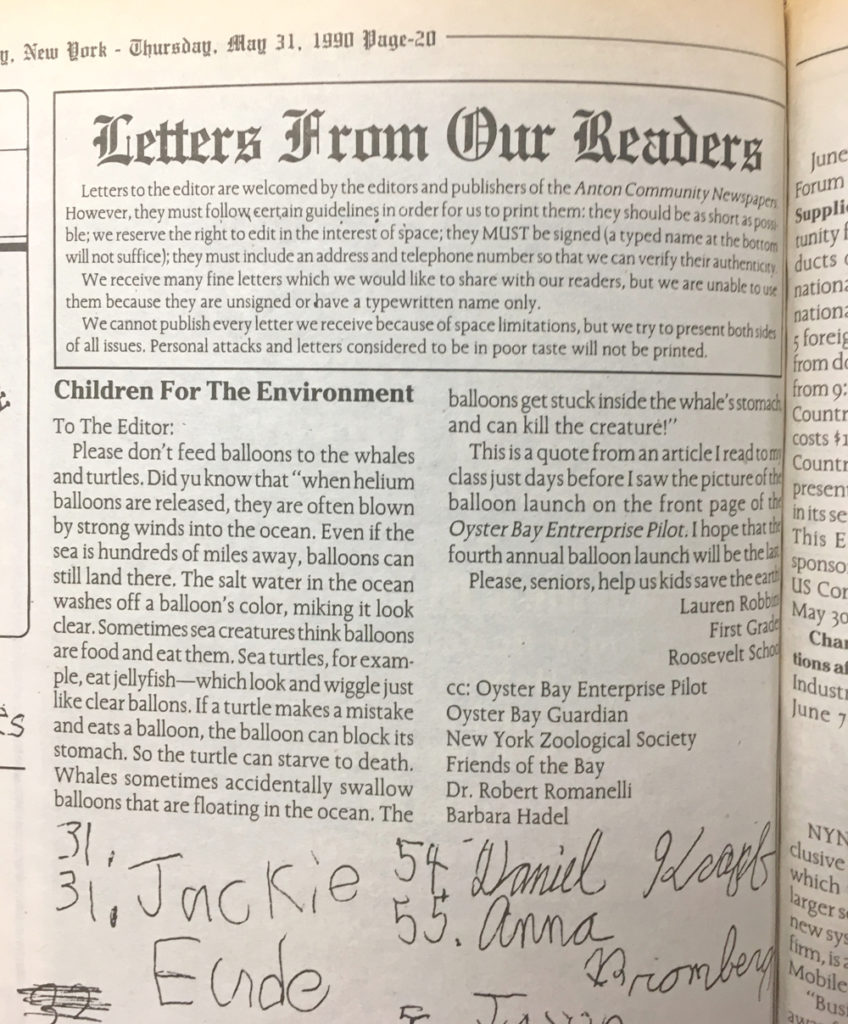 y, New York - Thursday, May 31, 1990 Page-20
Letters From Our Readers
Letters to the editor are welcomed by the editors and publishers of the Anton Community Newspapers.
However, they must follow certain guidelines in order for us to print them: they should be as short as possi-
ble; we reserve the right to edit in the interest of space; they MUST be signed (a typed name at the bottom
will not suffice); they must include an address and telephone number so that we can verify their authenticity.
We receive many fine letters which we would like to share with our readers, but we are unable to use
them because they are unsigned or have a typewritten name only.
We cannot publish every letter we receive because of space limitations, but we try to present both sides
of all issues. Personal attacks and letters considered to be in poor taste will not be printed.
Children For The Environment
To The Editor:
Please don't feed balloons to the whales
and turtles. Did yu know that "when helium
balloons are released, they are often blown
by strong winds into the ocean. Even if the
sea is hundreds of miles away, balloons can
still land there. The salt water in the ocean
washes off a balloon's color, miking it look
clear. Sometimes sea creatures think balloons
are food and eat them. Sea turtles, for exam-
ple, eat jellyfish—which look and wiggle just
like clear ballons. If a turtle makes a mistake
and eats a balloon, the balloon can block its
stomach. So the turtle can starve to death.
Whales sometimes accidentally swallow
balloons that are floating in the ocean. The
balloons get stuck inside the whale's stomach
and can kill the creature!"
This is a quote from an article I read to my
class just days before I saw the picture of the
balloon launch on the front page of the
Oyster Bay Entrerprise Pilot. I hope that the
fourth annual balloon launch will be the last.
Please, seniors, help us kids save the earth
Lauren Robbins
First Grade
Roosevelt School
cc: Oyster Bay Enterprise Pilot
Oyster Bay Guardian
New York Zoological Society
Friends of the Bay
Dr. Robert Romanelli
Barbara Hadel
31.
31. Jackie
54. Daniel
55. Anna
Bromberg
June
Forum
Supplie
tunity f
ducts
nationa
nationa
5 foreig
from do
from 9:
Countr
costs $1
Countr
present
in its se
This E
sponso
US Cor
May 30
Char
tions af
Industr
June 7
NYN
clusive
which
larger s
new sys
firm, is a
Mobile
"Bus